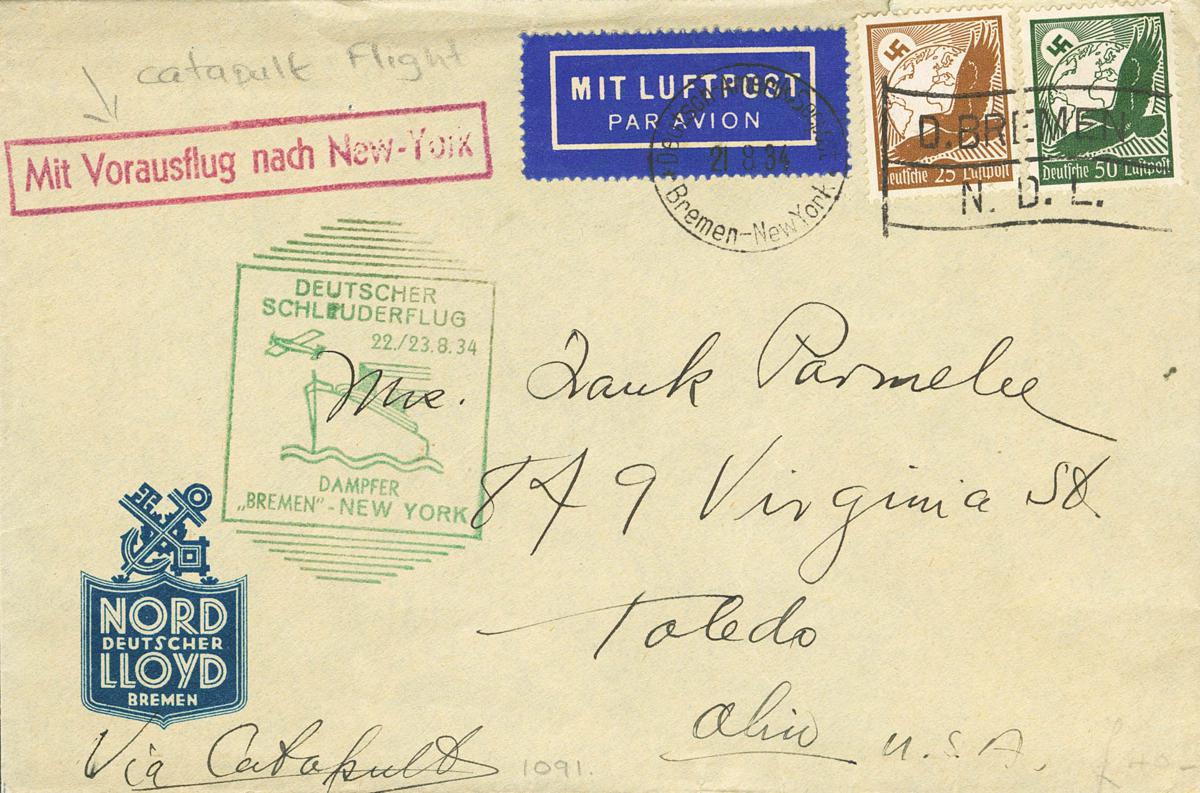 catapult Flight
Mit Vorausflug nach New-York
MIT LUFTPOST
PAR AVION
21.8.34
Bremen-New York
Deutsche 25 Luftpost
Deutsche 50 Luftpost
D. BREMEN
N. D. L.
DEUTSCHER
SCHLEUDERFLUG
22./23.8.34
DAMPFER
„BREMEN" - NEW YORK
Mrs. Frank Parmelee
879 Virginia St.
Toledo
Ohio U.S.A.
NORD
DEUTSCHER
LLOYD
BREMEN
Via Catapult
1091.